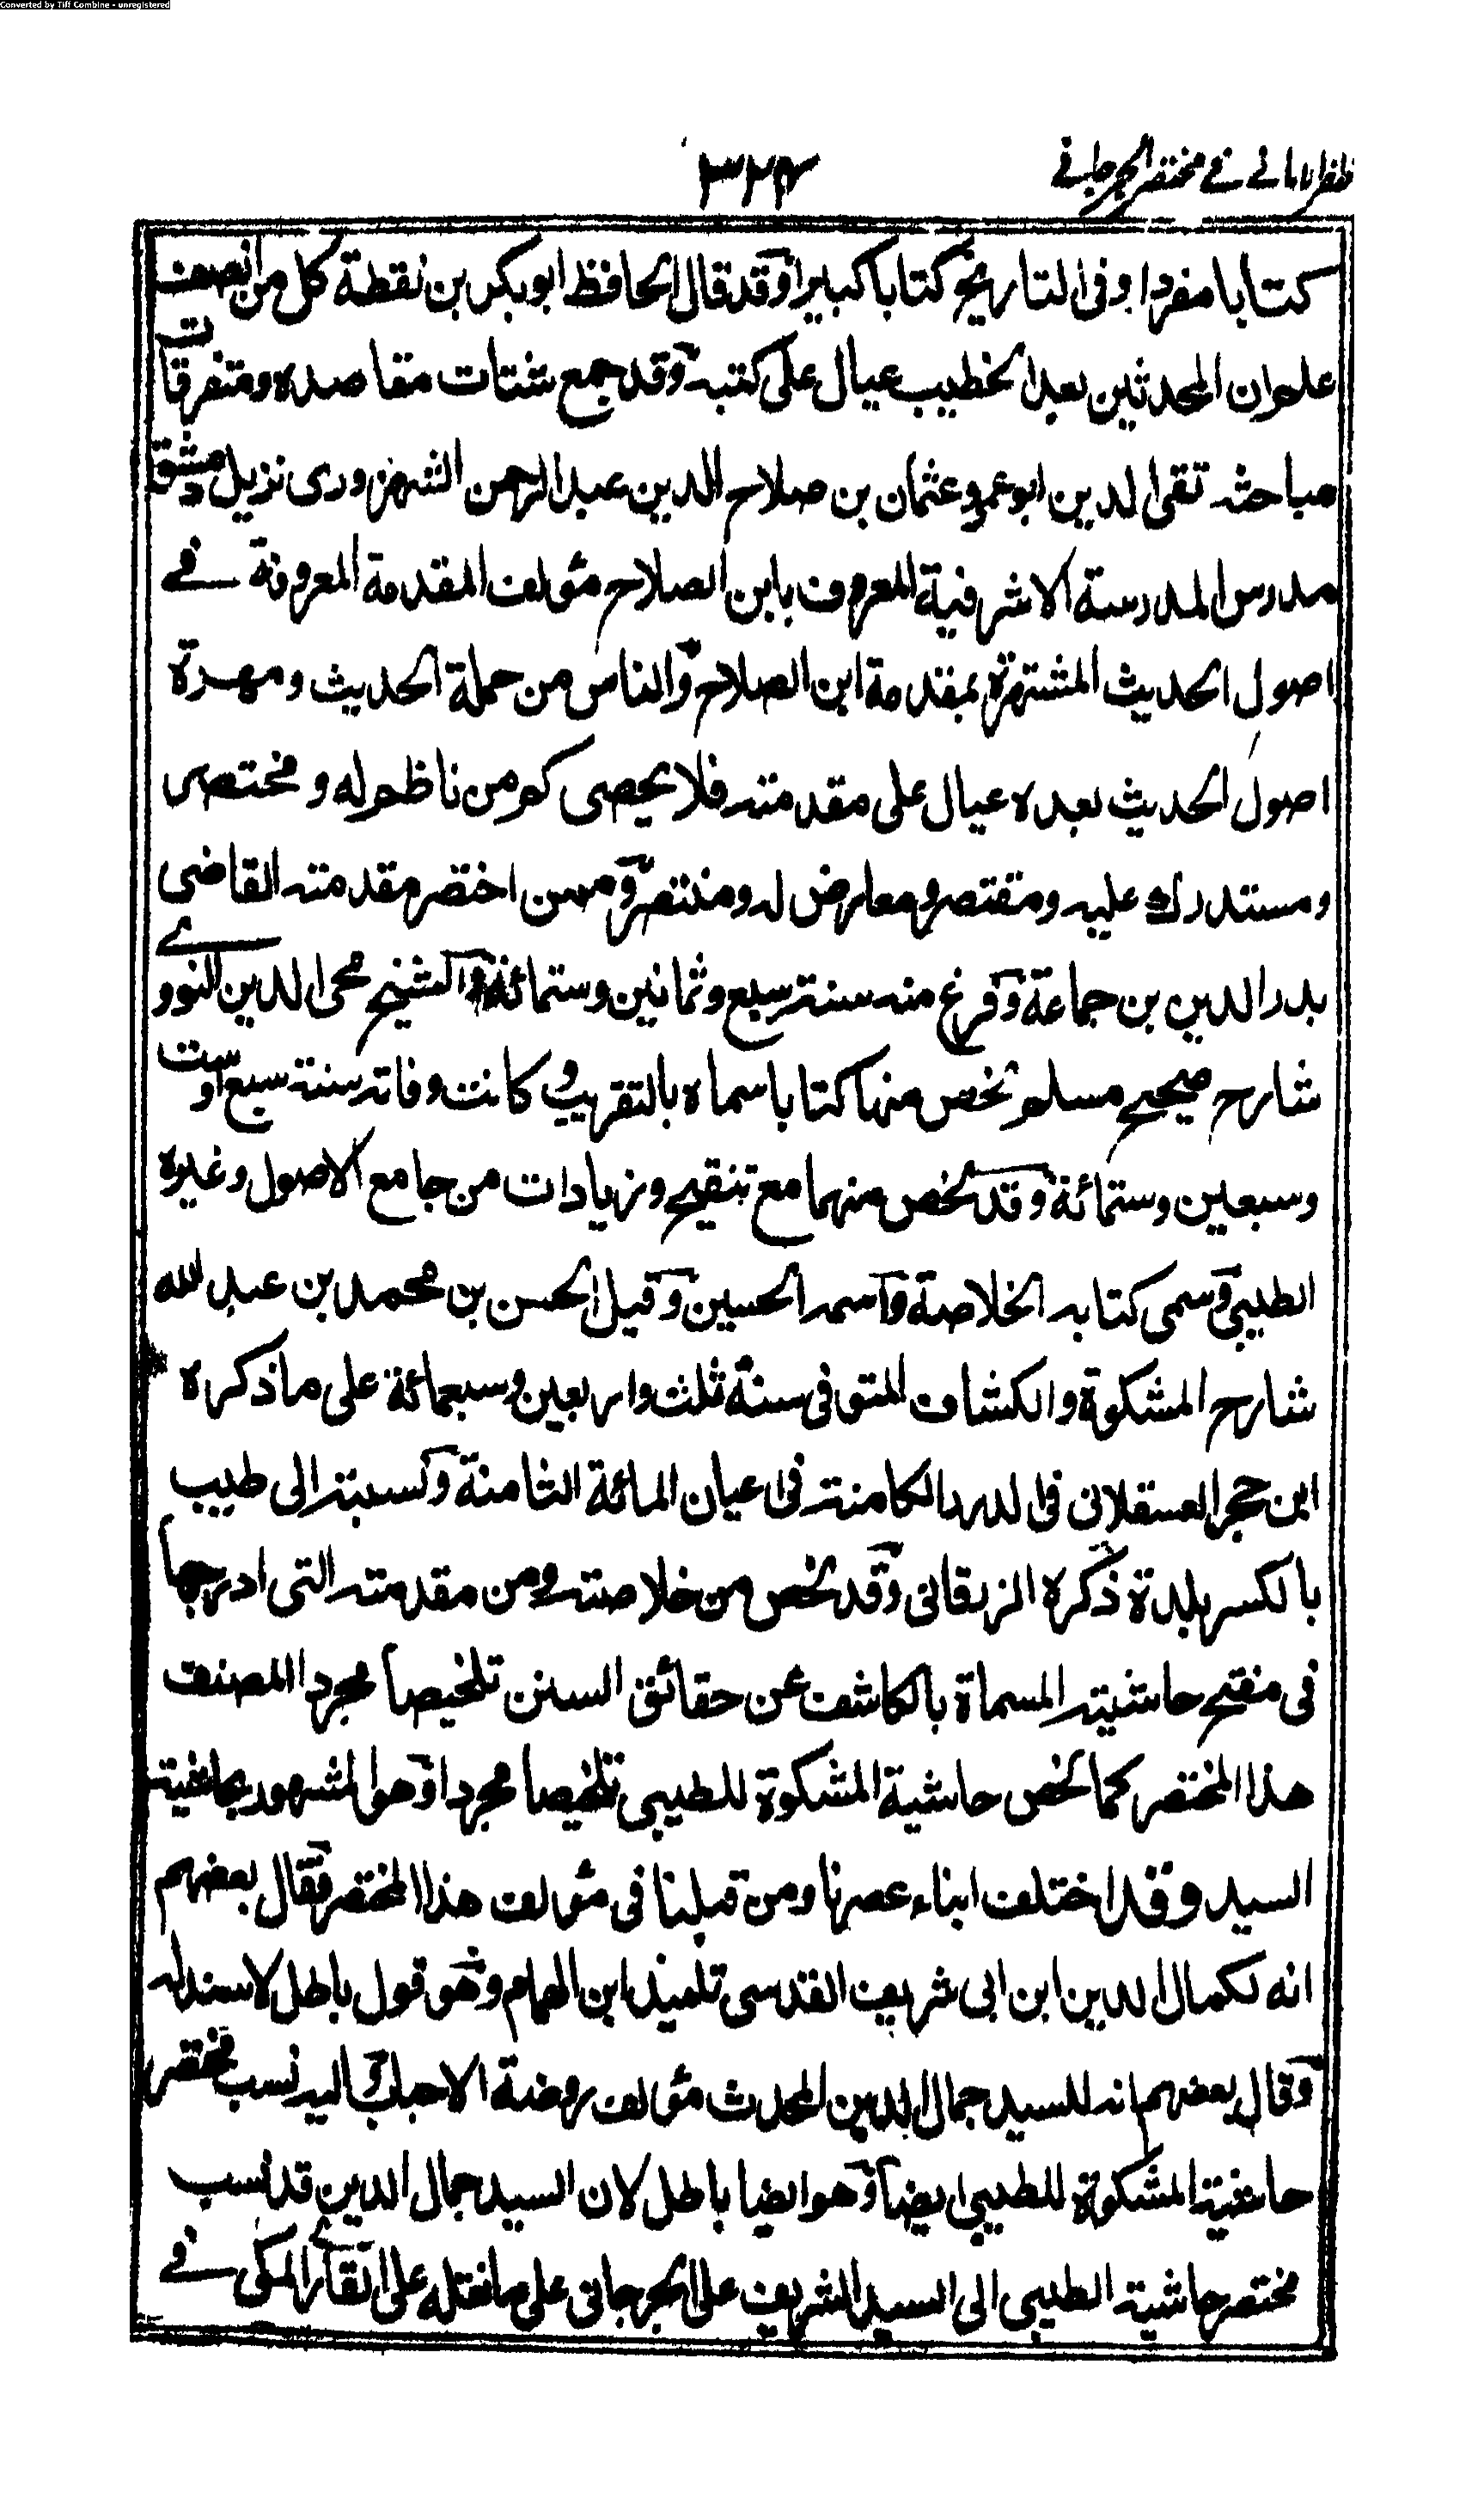 Converted by Tiff Combine - unregistered
ظفر الامانى فے مختصر الجرجانے
۳۲۴
كتابا مفردا وفى التاريخ كتابا كبيرا وقد قال الحافظ ابو بكر بن نقطة كل من انصف
علم ان المحدثين بعد الخطيب عيال على كتبه وقد جمع شتات مقاصده ومتفرقات
مباحثه تقى الدين ابو عمرو عثمان بن صلاح الدين عبد الرحمن الشهرزورى نزيل دمشق
مدرس المدرسة الاشرفية المعروف بابن الصلاح مؤلف المقدمة المعروفة فے
اصول الحديث المشتهرة بمقدمة ابن الصلاح والناس من حملة الحديث ومهرة
اصول الحديث بعده عيال على مقدمته فلا يحصى كم من ناظم له ومختصر
ومستدرك عليه ومقتصر ومعارض له ومنتصر وممن اختصر مقدمته القاضى
بدر الدين بن جماعة وفرغ منه سنة سبع وثمانين وستمائة والشيخ محى الدين النووے
شارح صحيح مسلم لخص منها كتابا سماه بالتقريب وكانت وفاته سنة سبع اوست
وسبعين وستمائة وقد لخص منهما مع تنقيح وزيادات من جامع الاصول وغيره
الطيبى وسمى كتابه الخلاصة واسمه الحسين وقيل الحسن بن محمد بن عبد الله
شارح المشكوة والكشاف المتوفى سنة ثلث واربعين وسبعمائة على ما ذكره
ابن حجر العسقلانى فى الدرر الكامنة فى اعيان المائة الثامنة ونسبته الى طيب
بالكسر بلدة ذكره الزرقانى وقد لخص من خلاصته ومن مقدمته التى ادرجها
فى مفتح حاشيته المسماة بالكاشف عن حقائق السنن تلخيصا مجردا المصنف
هذا المختصر كما لخص حاشية المشكوة للطيبى تلخيصا مجردا وهو المشهور بحاشية
السيد وقد اختلف ابناء عصرنا ومن قبلنا فى مؤلف هذا المختصر فقال بعضهم
انه لكمال الدين ابن ابى شريف القدسى تلميذ ابن الهمام وهو قول باطل لا سند له
وقال بعضهم انه للسيد جمال الدين المحدث مؤلف روضة الاحباب واليه نسب مختصر
حاشية المشكوة للطيبى ايضا وهو ايضا باطل لان السيد جمال الدين قد نسب
مختصر حاشية الطيبى الى السيد الشريف على الجرجانى على ما نقله على القارے المكى فے